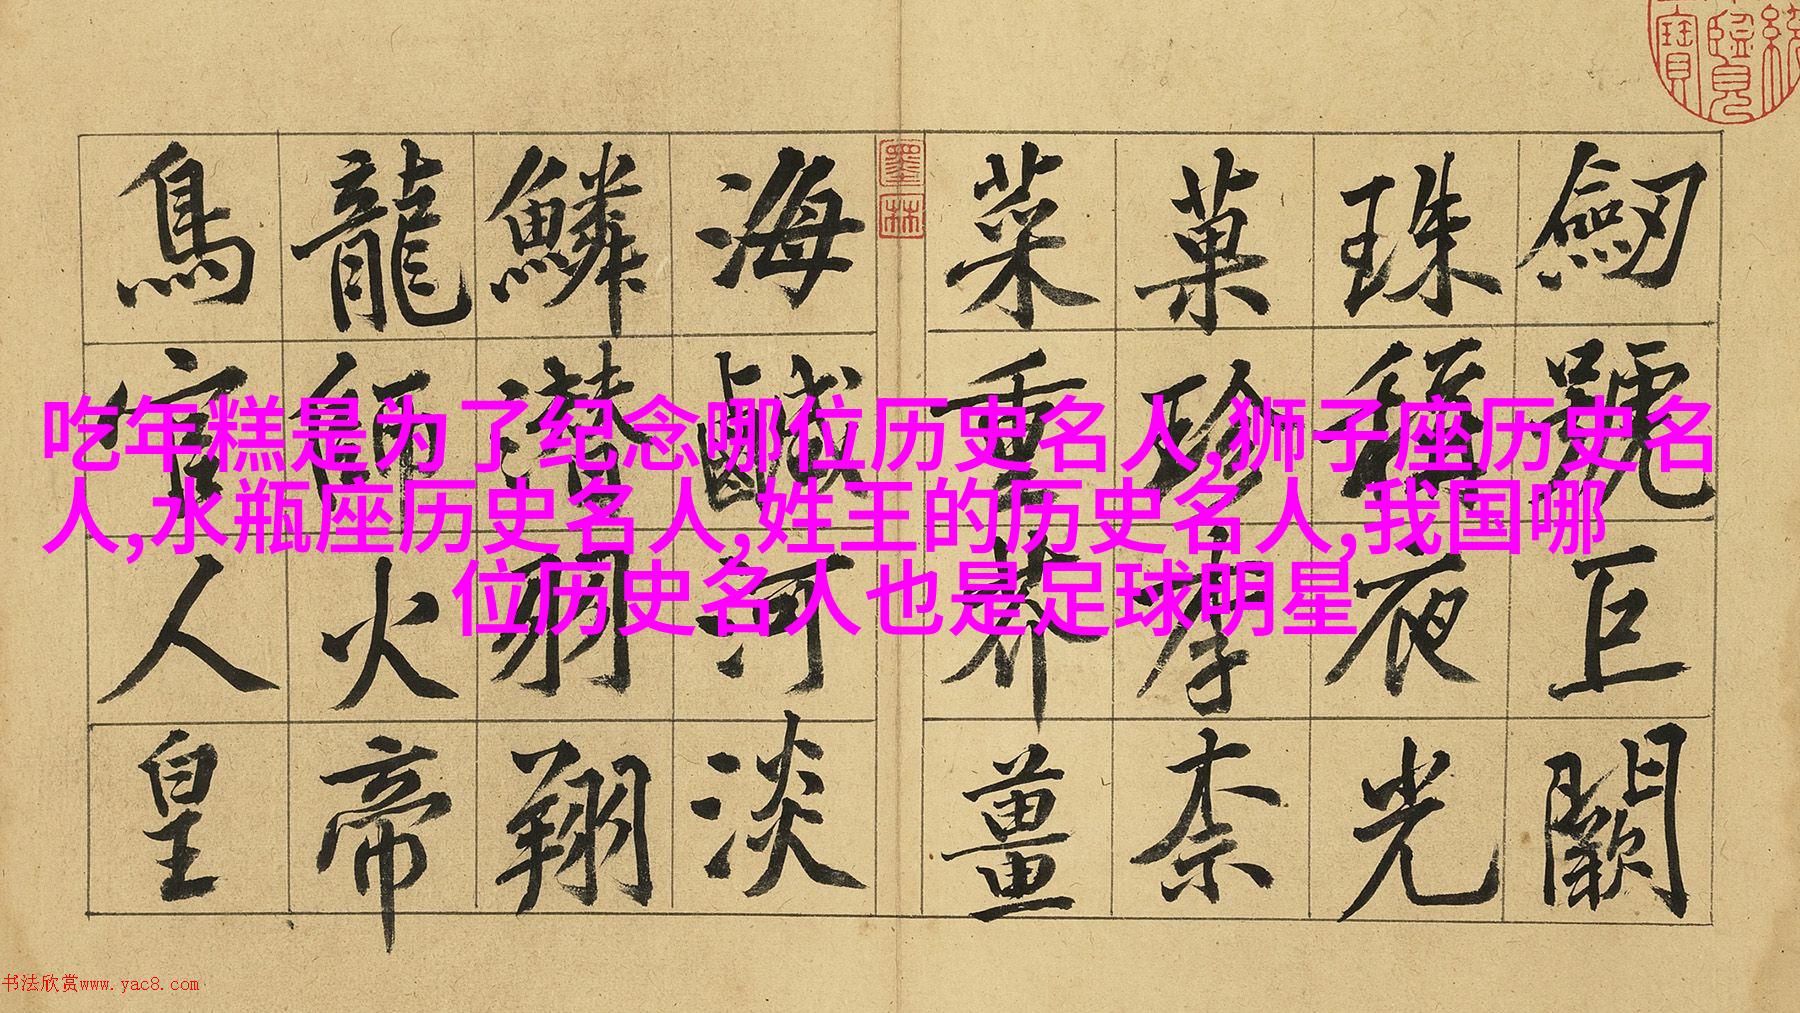 吃年糕是为了纪念哪位历史名人,狮子座历史名
人,水瓶座历史名人,姓王的历史名人,我国哪
位历史名人也是足球明星
劒號巨闕
珠稱夜光
菓珍李柰
菜重芥薑
海鹹河淡
鱗潛羽翔
龍師火帝
鳥官人皇
墨林
寶
覽
书法欣赏www.yac8.com